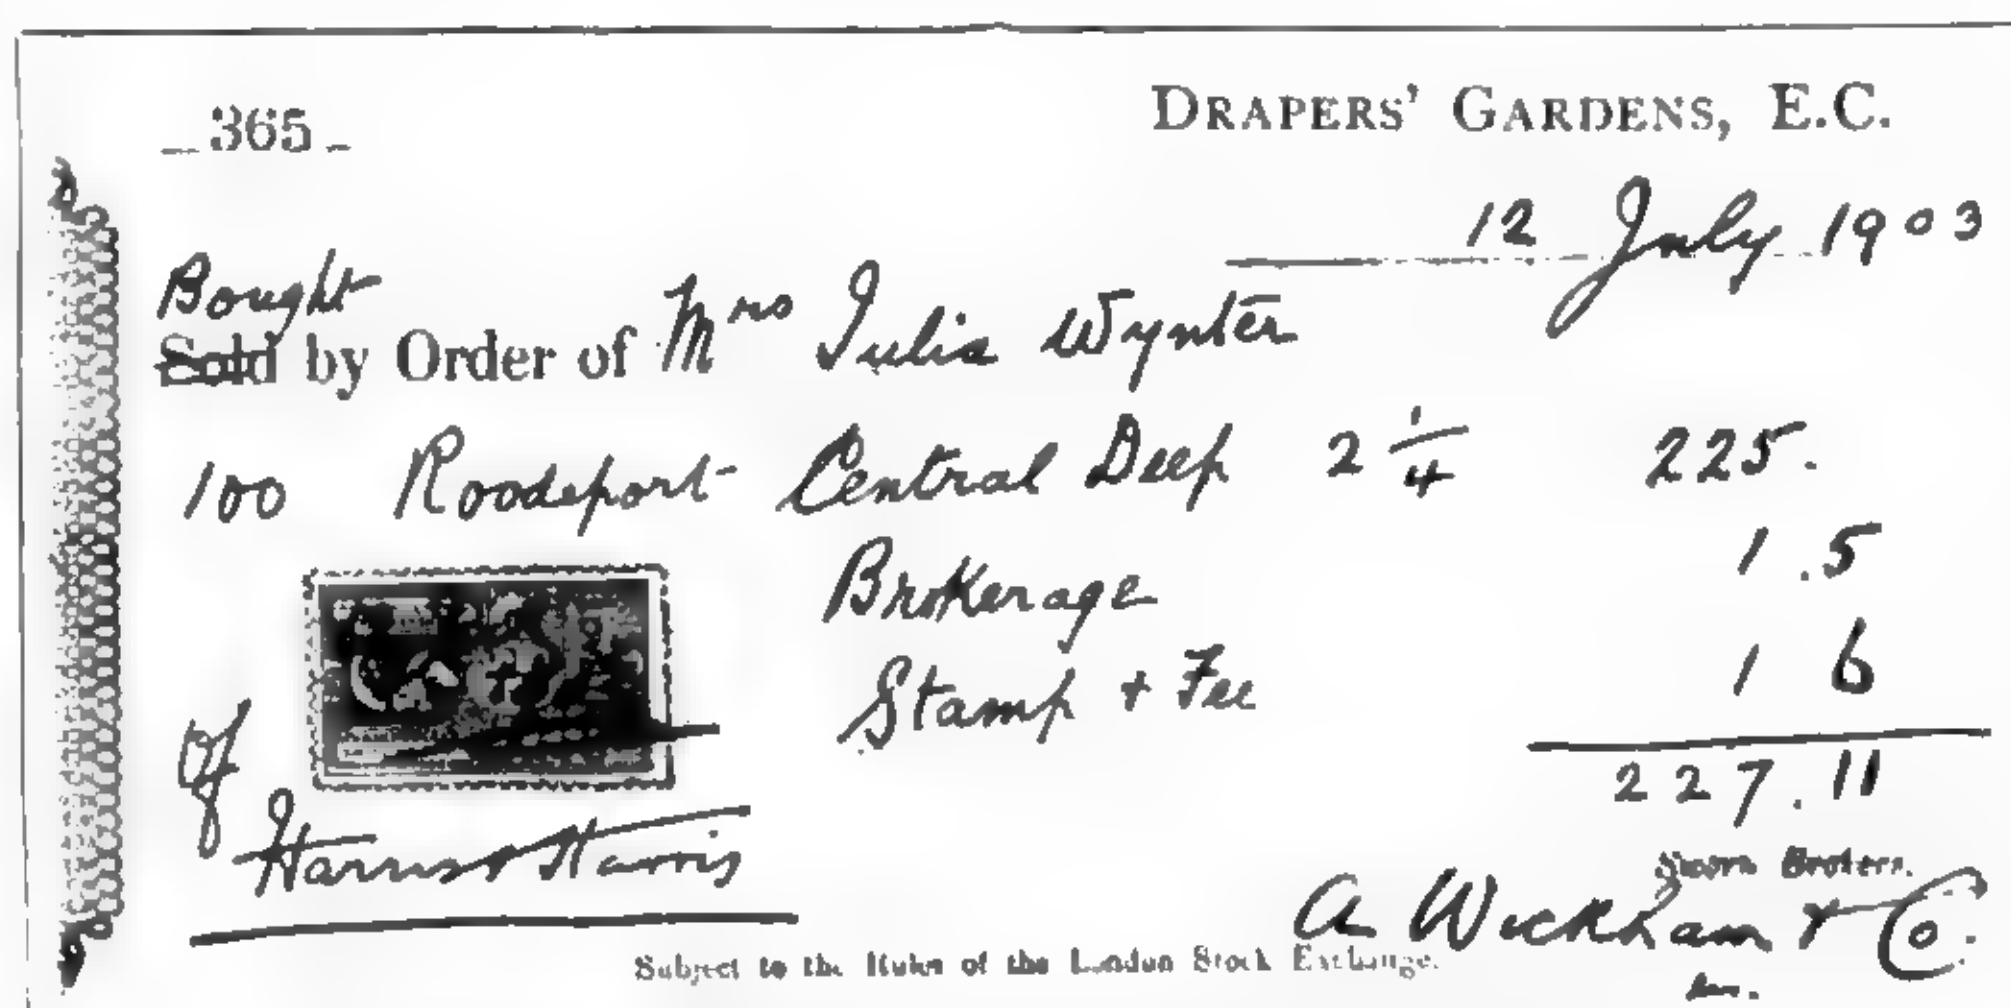 365
DRAPERS' GARDENS, E.C.
12 July 1903
Bought
Sold by Order of Mrs Julia Wynter
100 Roodeport Central Deep 2 1/4 225.
Brokerage 1.5
Stamp + Fee 1 6
227.11
Of
Harris & Harris
Sworn Brokers.
A Wickham & Co.
Subject to the Rules of the London Stock Exchange.